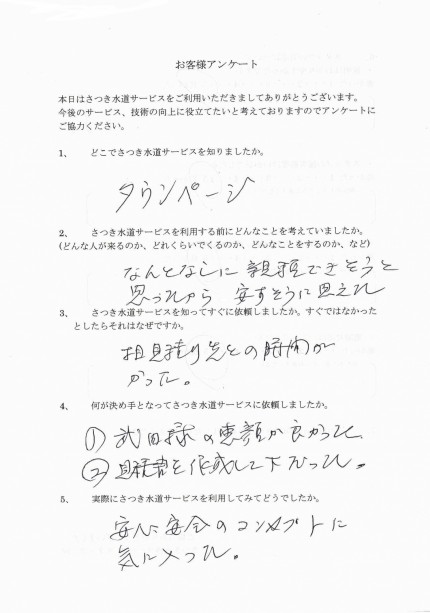 お客様アンケート
本日はさつき水道サービスをご利用いただきましてありがとうございます。
今後のサービス、技術の向上に役立てたいと考えておりますのでアンケートに
ご協力ください。
1、 どこでさつき水道サービスを知りましたか。
タウンページ
2、 さつき水道サービスを利用する前にどんなことを考えていましたか。
(どんな人が来るのか、どれくらいでくるのか、どんなことをするのか、など)
なんとなしに 親種できそうと
思ったから 安すそうに思えた
3、 さつき水道サービスを知ってすぐに依頼しましたか。すぐではなかった
としたらそれはなぜですか。
相見積り先との時間が
かかった。
4、 何が決め手となってさつき水道サービスに依頼しましたか。
① 武田様の恵顔が良かった
② 見積書を作成して下さった。
5、 実際にさつき水道サービスを利用してみてどうでしたか。
安心安全のコンセプトに
気に入った。